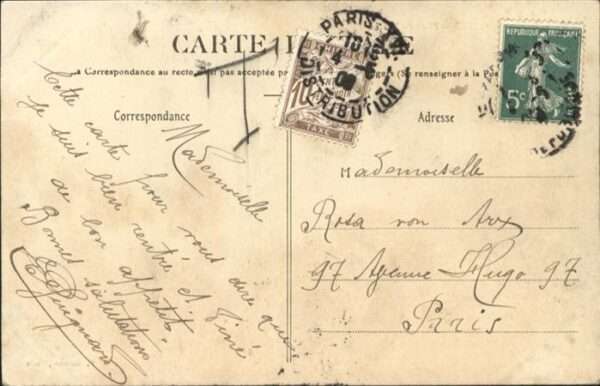 CARTE
La Correspondance au recto pas acceptée renseigner à la Poste
Correspondance
Adresse
PARIS
DISTRIBUTION
10
TAXE
RÉPUBLIQUE FRANÇAISE
5c
Mademoiselle
Cette carte pour vous dire que
je suis bien rentré et diné
de bon appétit.
Bonnes salutations
Mademoiselle
Rosa von Arx
97 Avenue Hugo 97
Paris